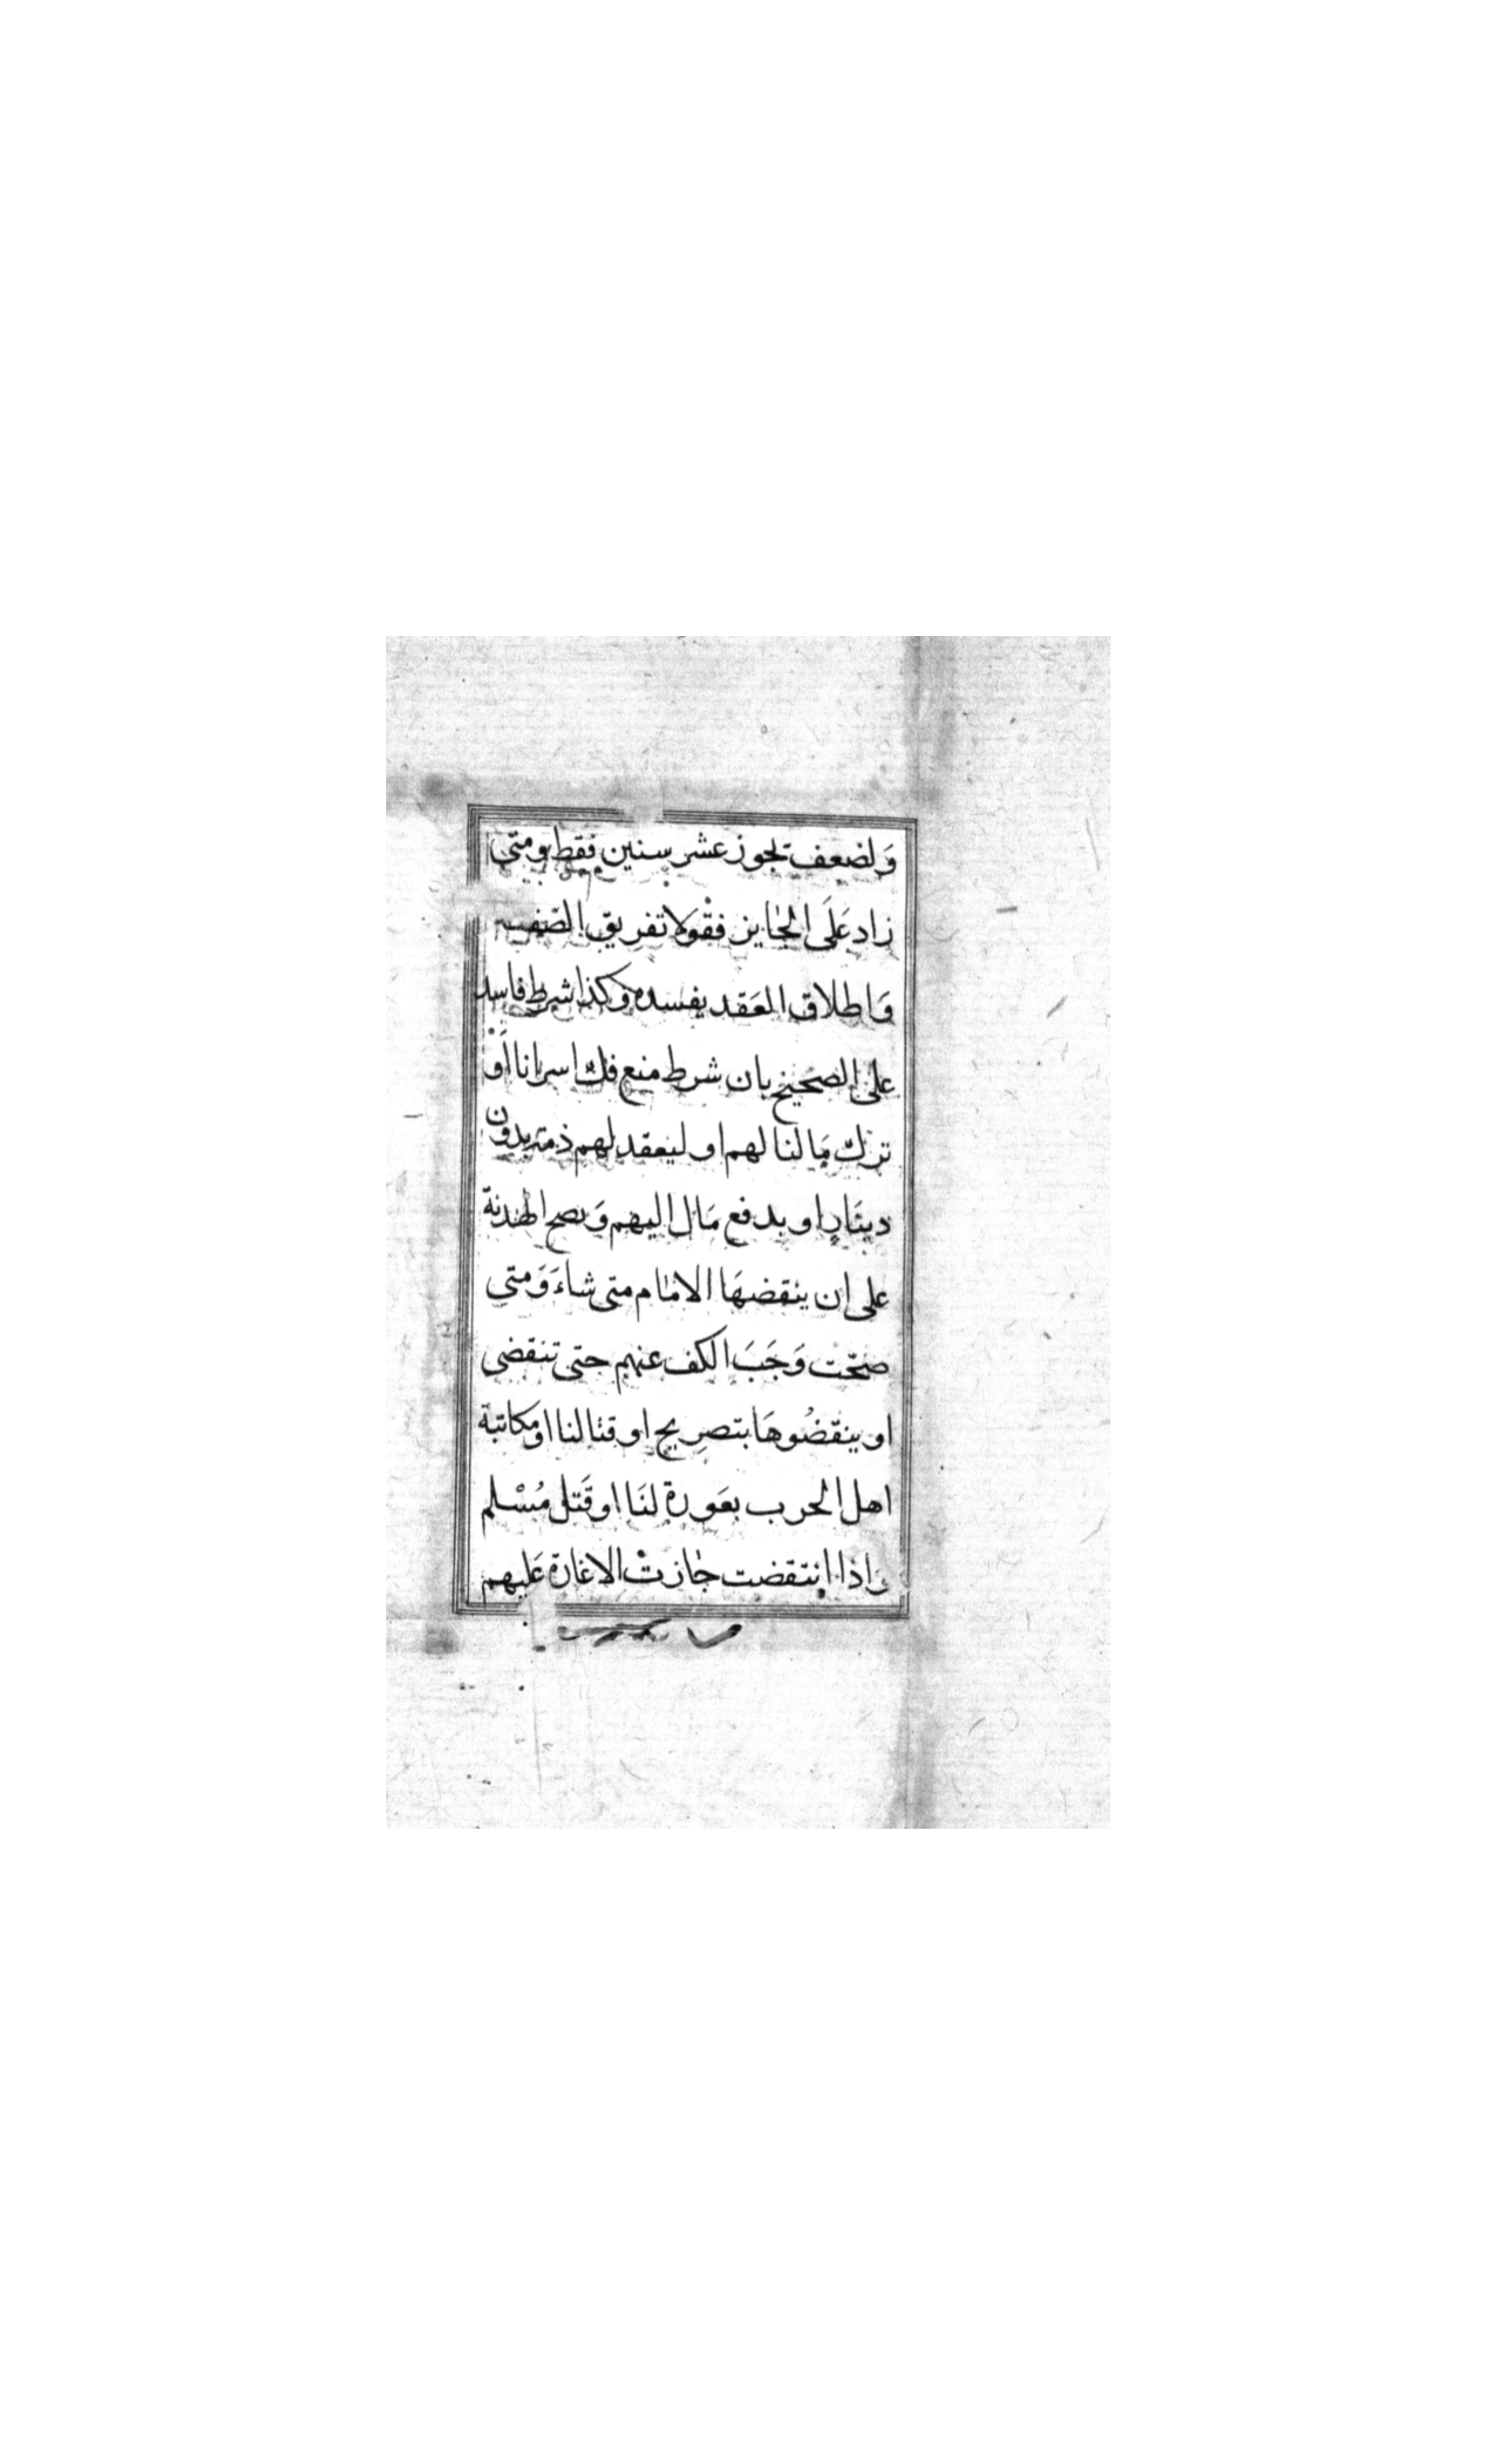 وَلضعف تجوز عشر سنين فقط ومتى
زاد عَلَى الجايز فقولا تفريق الصّفقه
وَاطلاق العَقد يفسده وكذا شرط فاسد
على الصحيح بان شرط منع فك اسرانا اَو
ترك مَا لنا لهم او ليعقد لهم ذمة بدون
دينَارٍ او بدفع مَال اليهم وَتصح الهدنة
على ان ينقضهَا الامام متى شاءَ وَمتى
صحّت وَجَبَ الكف عنهم حتى تنقضى
او ينقضُوهَا بتصريح او قتالنا او مكاتبة
اهل الحرب بعَورة لنَا او قَتل مُسْلم
واذا انتقضت جازت الاغارة عَليهم